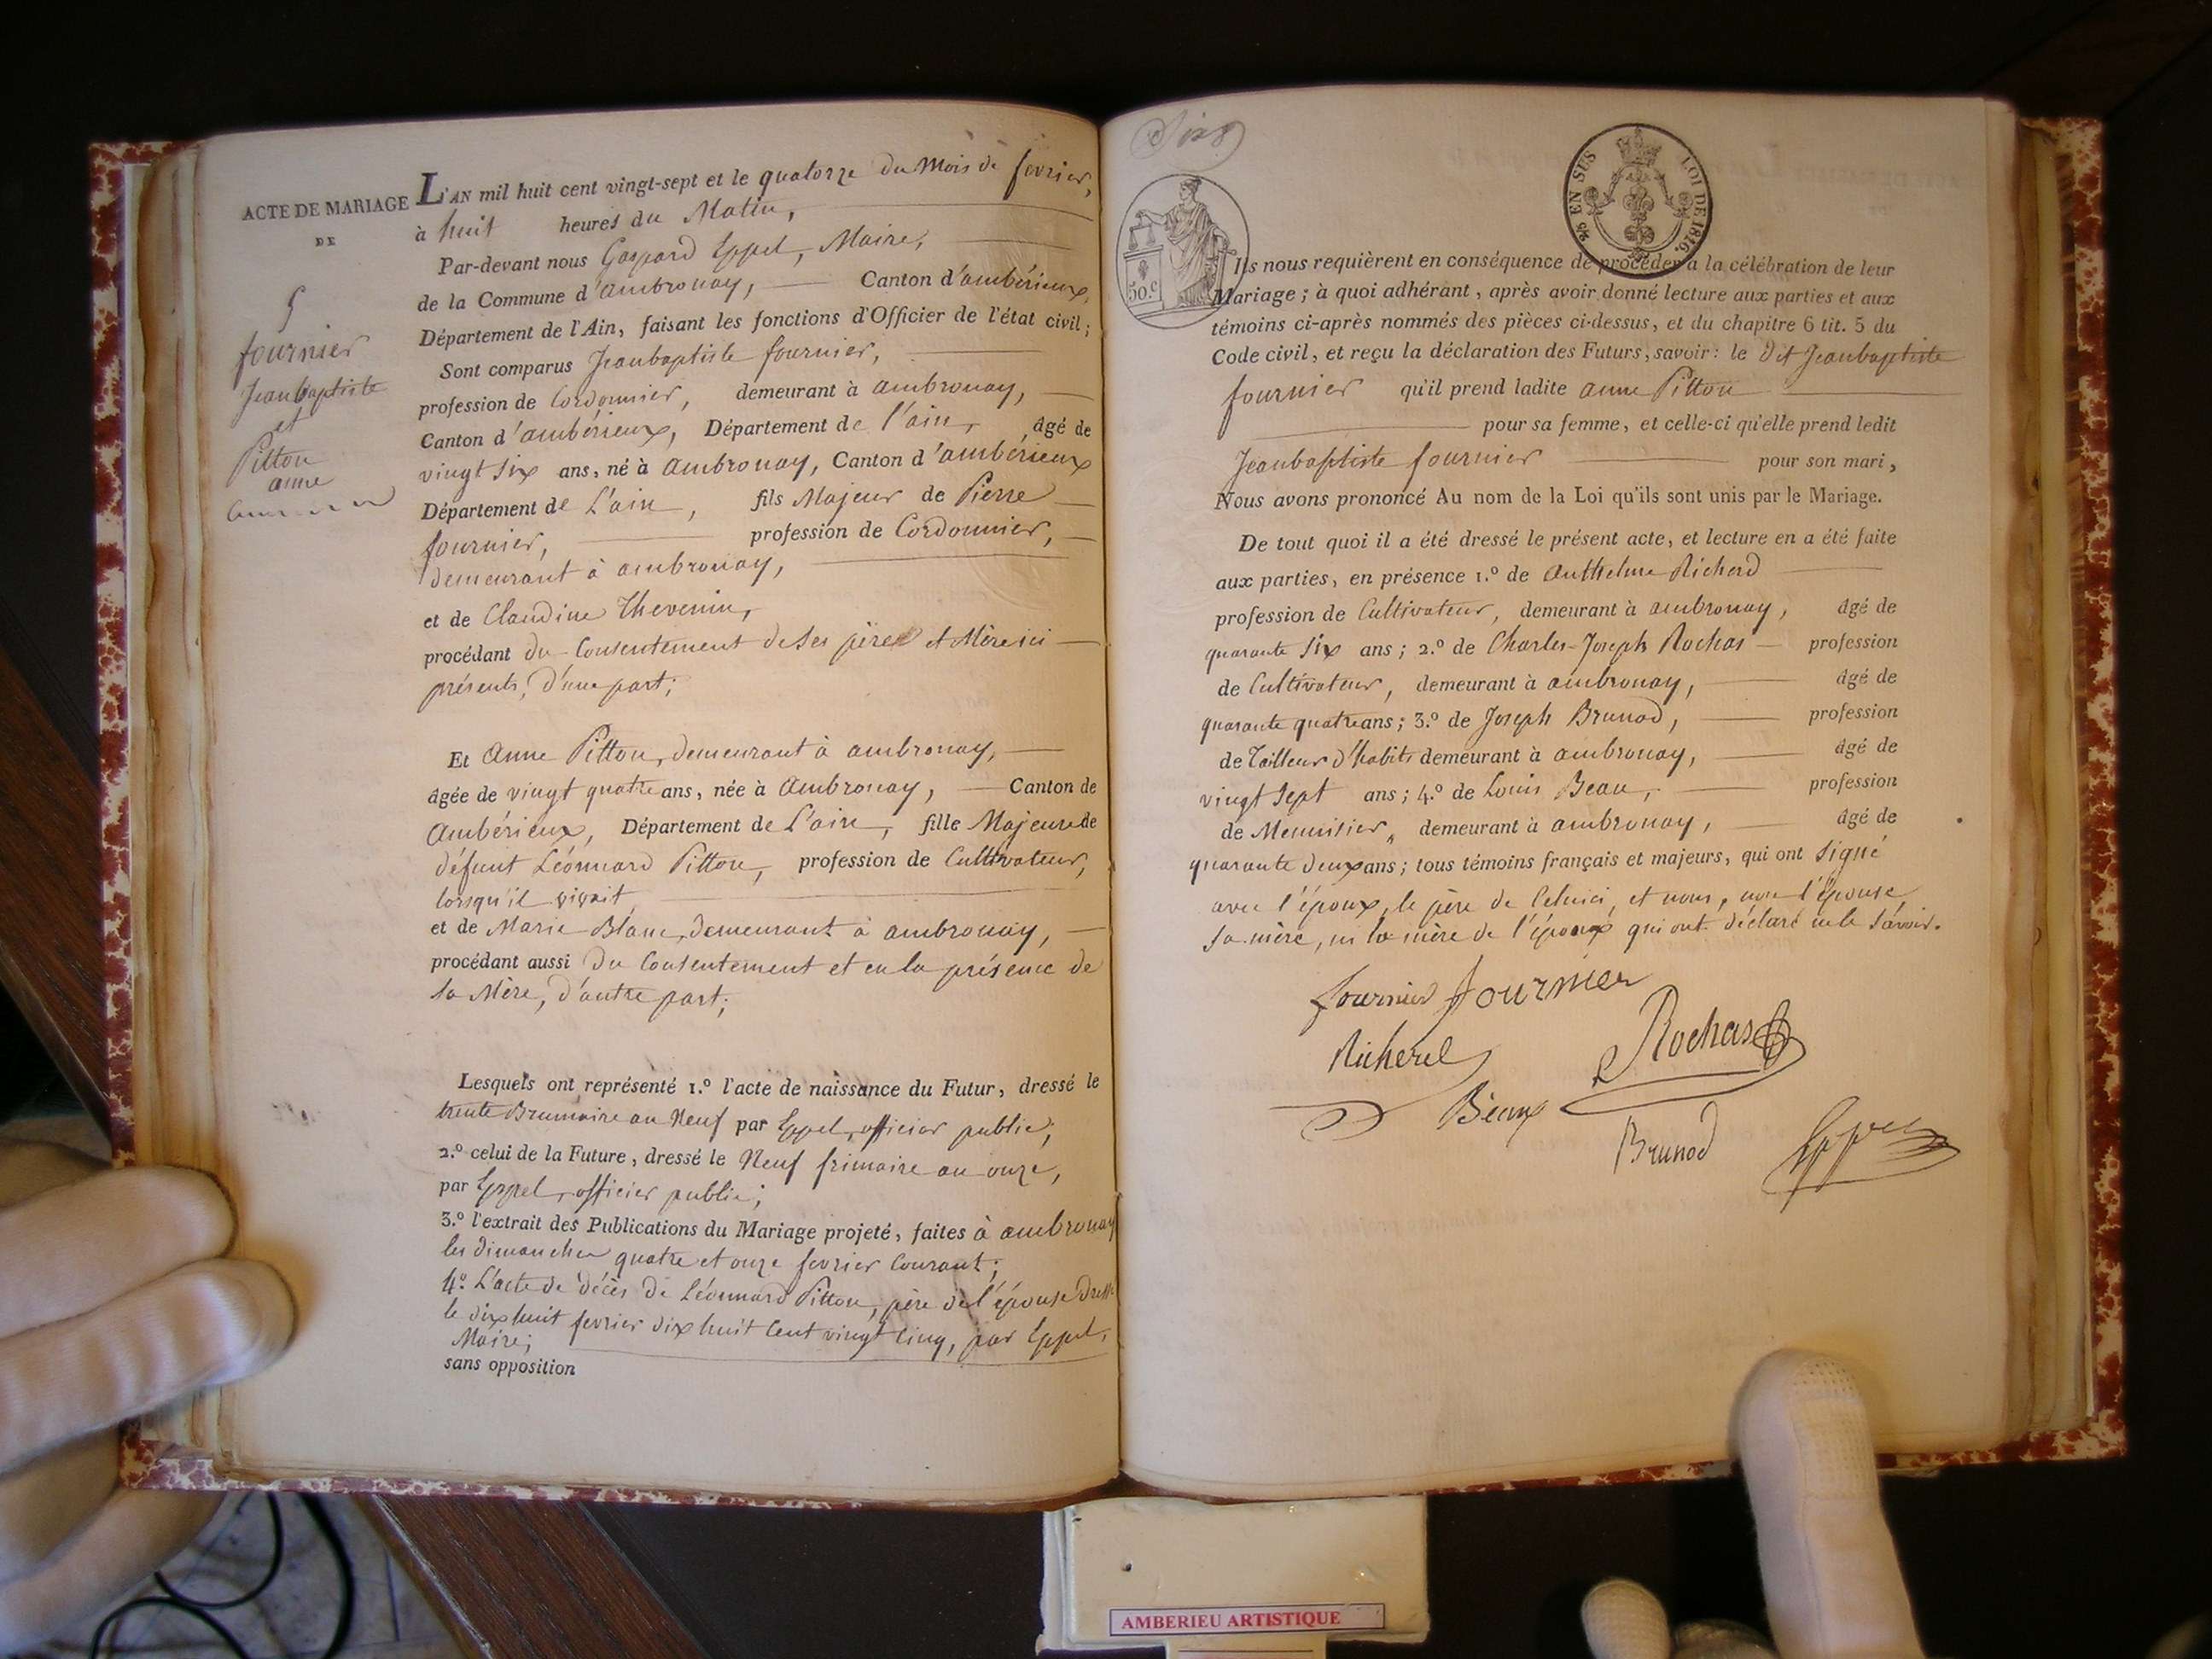 ACTE DE MARIAGE
DE
5
fournier
Jeanbaptiste
et
Pitton
anne
L'AN mil huit cent vingt-sept et le quatorze du Mois de fevrier,
à huit heures du Matin,
Par-devant nous Gaspard Eppel, Maire,
de la Commune d'ambronay, Canton d'ambérieux,
Département de l'Ain, faisant les fonctions d'Officier de l'état civil;
Sont comparus Jeanbaptiste fournier,
profession de Cordonnier, demeurant à ambronay,
Canton d'ambérieux, Département de l'ain, âgé de
vingt six ans, né à Ambronay, Canton d'ambérieux
Département de L'ain, fils Majeur de Pierre
fournier, profession de Cordonnier,
demeurant à ambronay,
et de Claudine Thevenin,
procédant du Consentement de Ses père et Mère ici
présents, d'une part;
Et Anne Pitton, demeurant à ambronay,
âgée de vingt quatre ans, née à Ambronay, Canton de
Ambérieux, Département de L'ain, fille Majeure de
défunt Léonnard Pitton, profession de Cultivateur,
lorsqu'il vivait
et de Marie Blanc, demeurant à ambronay,
procédant aussi du Consentement et en la présence de
Sa Mère, d'autre part;
Lesquels ont représenté 1.º l'acte de naissance du Futur, dressé le
trente Brumaire an Neuf par Eppel, officier public;
2.º celui de la Future, dressé le Neuf frimaire an onze,
par Eppel, officier public;
3.º l'extrait des Publications du Mariage projeté, faites à ambronay
les dimanches quatre et onze fevrier Courant;
4º. L'acte de décès de Léonnard Pitton, père de l'épouse dressé
le dix huit fevrier dix huit Cent vingt Cinq, par Eppel,
Maire;
sans opposition
Six
50.c
25 EN SUS LOI DE 1816.
Ils nous requièrent en conséquence de procéder à la célébration de leur
Mariage; à quoi adhérant, après avoir donné lecture aux parties et aux
témoins ci-après nommés des pièces ci-dessus, et du chapitre 6 tit. 5 du
Code civil, et reçu la déclaration des Futurs, savoir: le dit Jeanbaptiste
fournier qu'il prend ladite anne Pitton
pour sa femme, et celle-ci qu'elle prend ledit
Jeanbaptiste fournier pour son mari,
Nous avons prononcé Au nom de la Loi qu'ils sont unis par le Mariage.
De tout quoi il a été dressé le présent acte, et lecture en a été faite
aux parties, en présence 1.º de Anthelme Richerd
profession de Cultivateur, demeurant à ambronay, âgé de
quarante six ans; 2.º de Charles-Joseph Rochas profession
de Cultivateur, demeurant à ambronay, âgé de
quarante quatre ans; 3.º de Joseph Brunod, profession
de Tailleur d'habits demeurant à ambronay, âgé de
vingt Sept ans; 4.º de Louis Beau, profession
de Menuisier, demeurant à ambronay, âgé de
quarante deux ans; tous témoins français et majeurs, qui ont signé
avec l'époux, le père de Celuici, et nous, non l'épouse
Sa mère, ni la mère de l'époux qui ont déclaré ne le Savoir.
fournier fournier
Richerd Rochas
Béaux
Brunod Eppel
AMBERIEU ARTISTIQUE